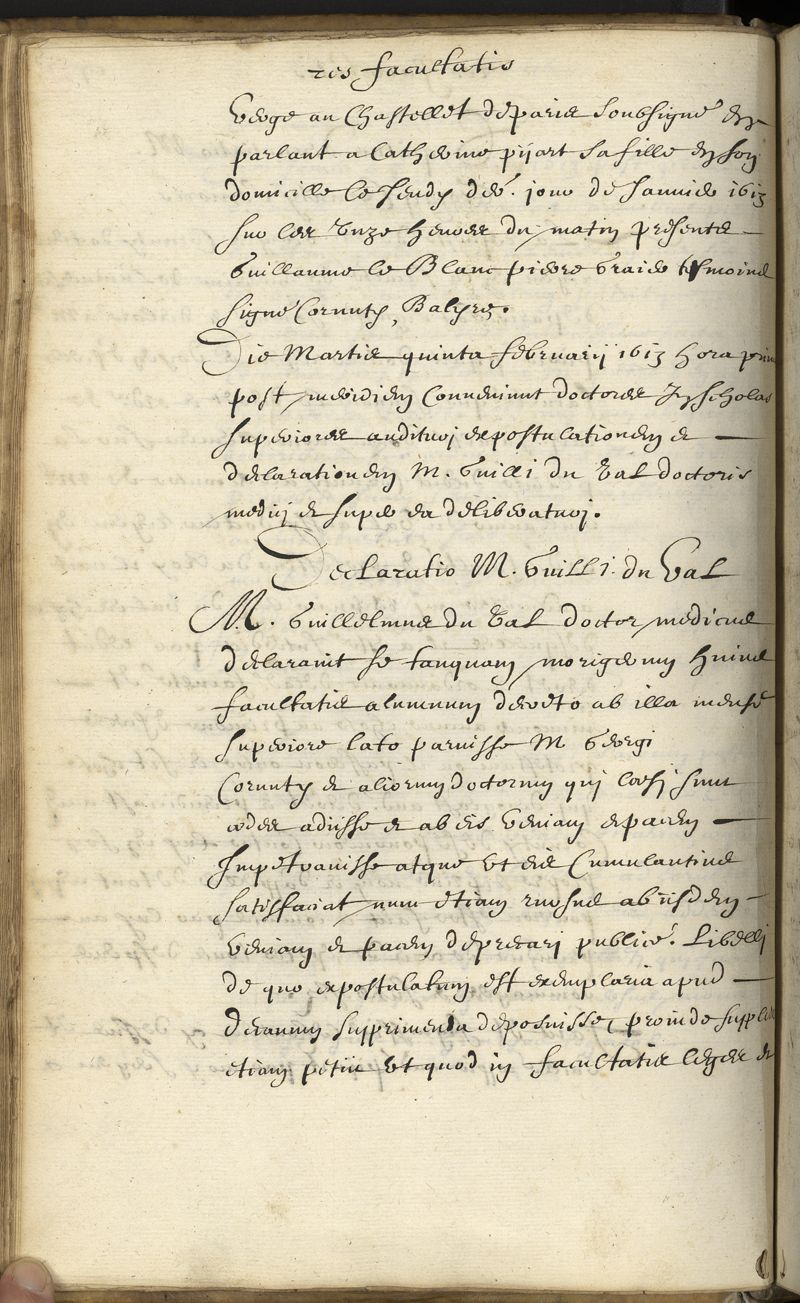 res facultatis
verge au Chastellet de paris soubsigné En
parlant a Catherine pijart sa fille En son
domicille le Jeudy der. jour de Januier 1613
sur les Unze heures du matin presents
Guillaume le Blanc pierre Vraie tesmoins
signé Cornuty, Balzre.
Die Martis quinta februarij 1613 hora prim
post meridiem Conuenerunt doctores In scholas
superiores audituri expostulationem et
declarationem M. Guill͞i du Val doctoris
medici et super ea deliberaturi.
Declaratio M. Guilli. du Val
M. Guillelmus du Val doctor medicus
declarauit se tanquam morigerum huius
facultatis alumnum decreto ab illa mense
superiore lato paruisse M Georgi
Cornuty et aliorum doctorum qui læsi sunt
ædes adiisse et ab eis veniam et pacem
Impetrauisse atque ut eis Cumulantius
satisfaciat nunc etiam rursus ab iisdem
veniam et pacem deprecari publicé. Libelli
de quo expostulatum est exemplaria apud
decanum supprimenda deposuisse, proinde supplex
etiam petiit ut quod in facultatis leges et